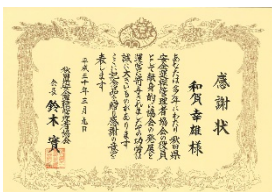 感謝状
和賀幸雄様
あなたは多年にわたり秋田県
安全運転管理者協会の役員
として献身的に協会の発展と
運営に寄与されましたその功績は
誠に大きいものがあります
ここに記念品を贈り感謝の意を
表します
平成三十年三月九日
秋田県安全運転管理者協会
会長 鈴木實